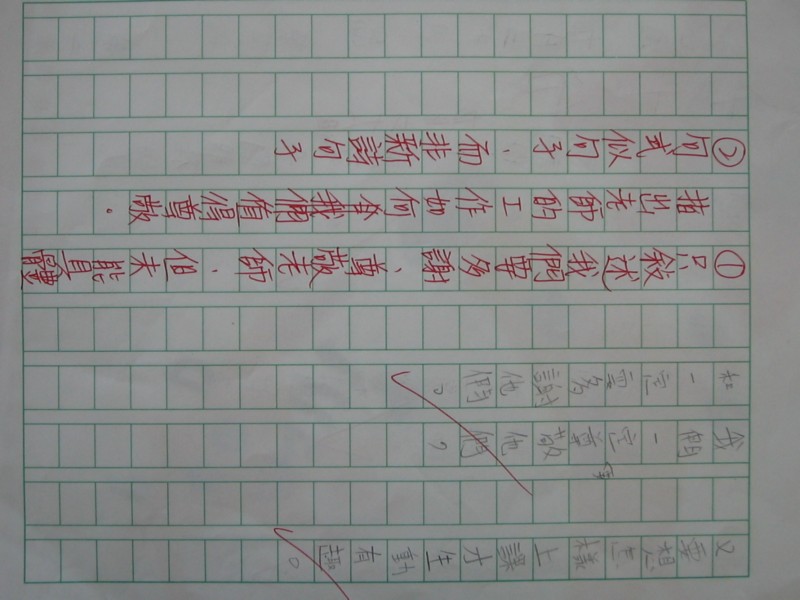 又要想怎樣上課才生動有趣。
我們一定尊敬他們？
和一定要多謝他們。
①只敘述我們要多謝、尊敬老師，但未能具體
指出老師的工作如何令我們值得尊敬。
②句式似句子，而非新詩句子